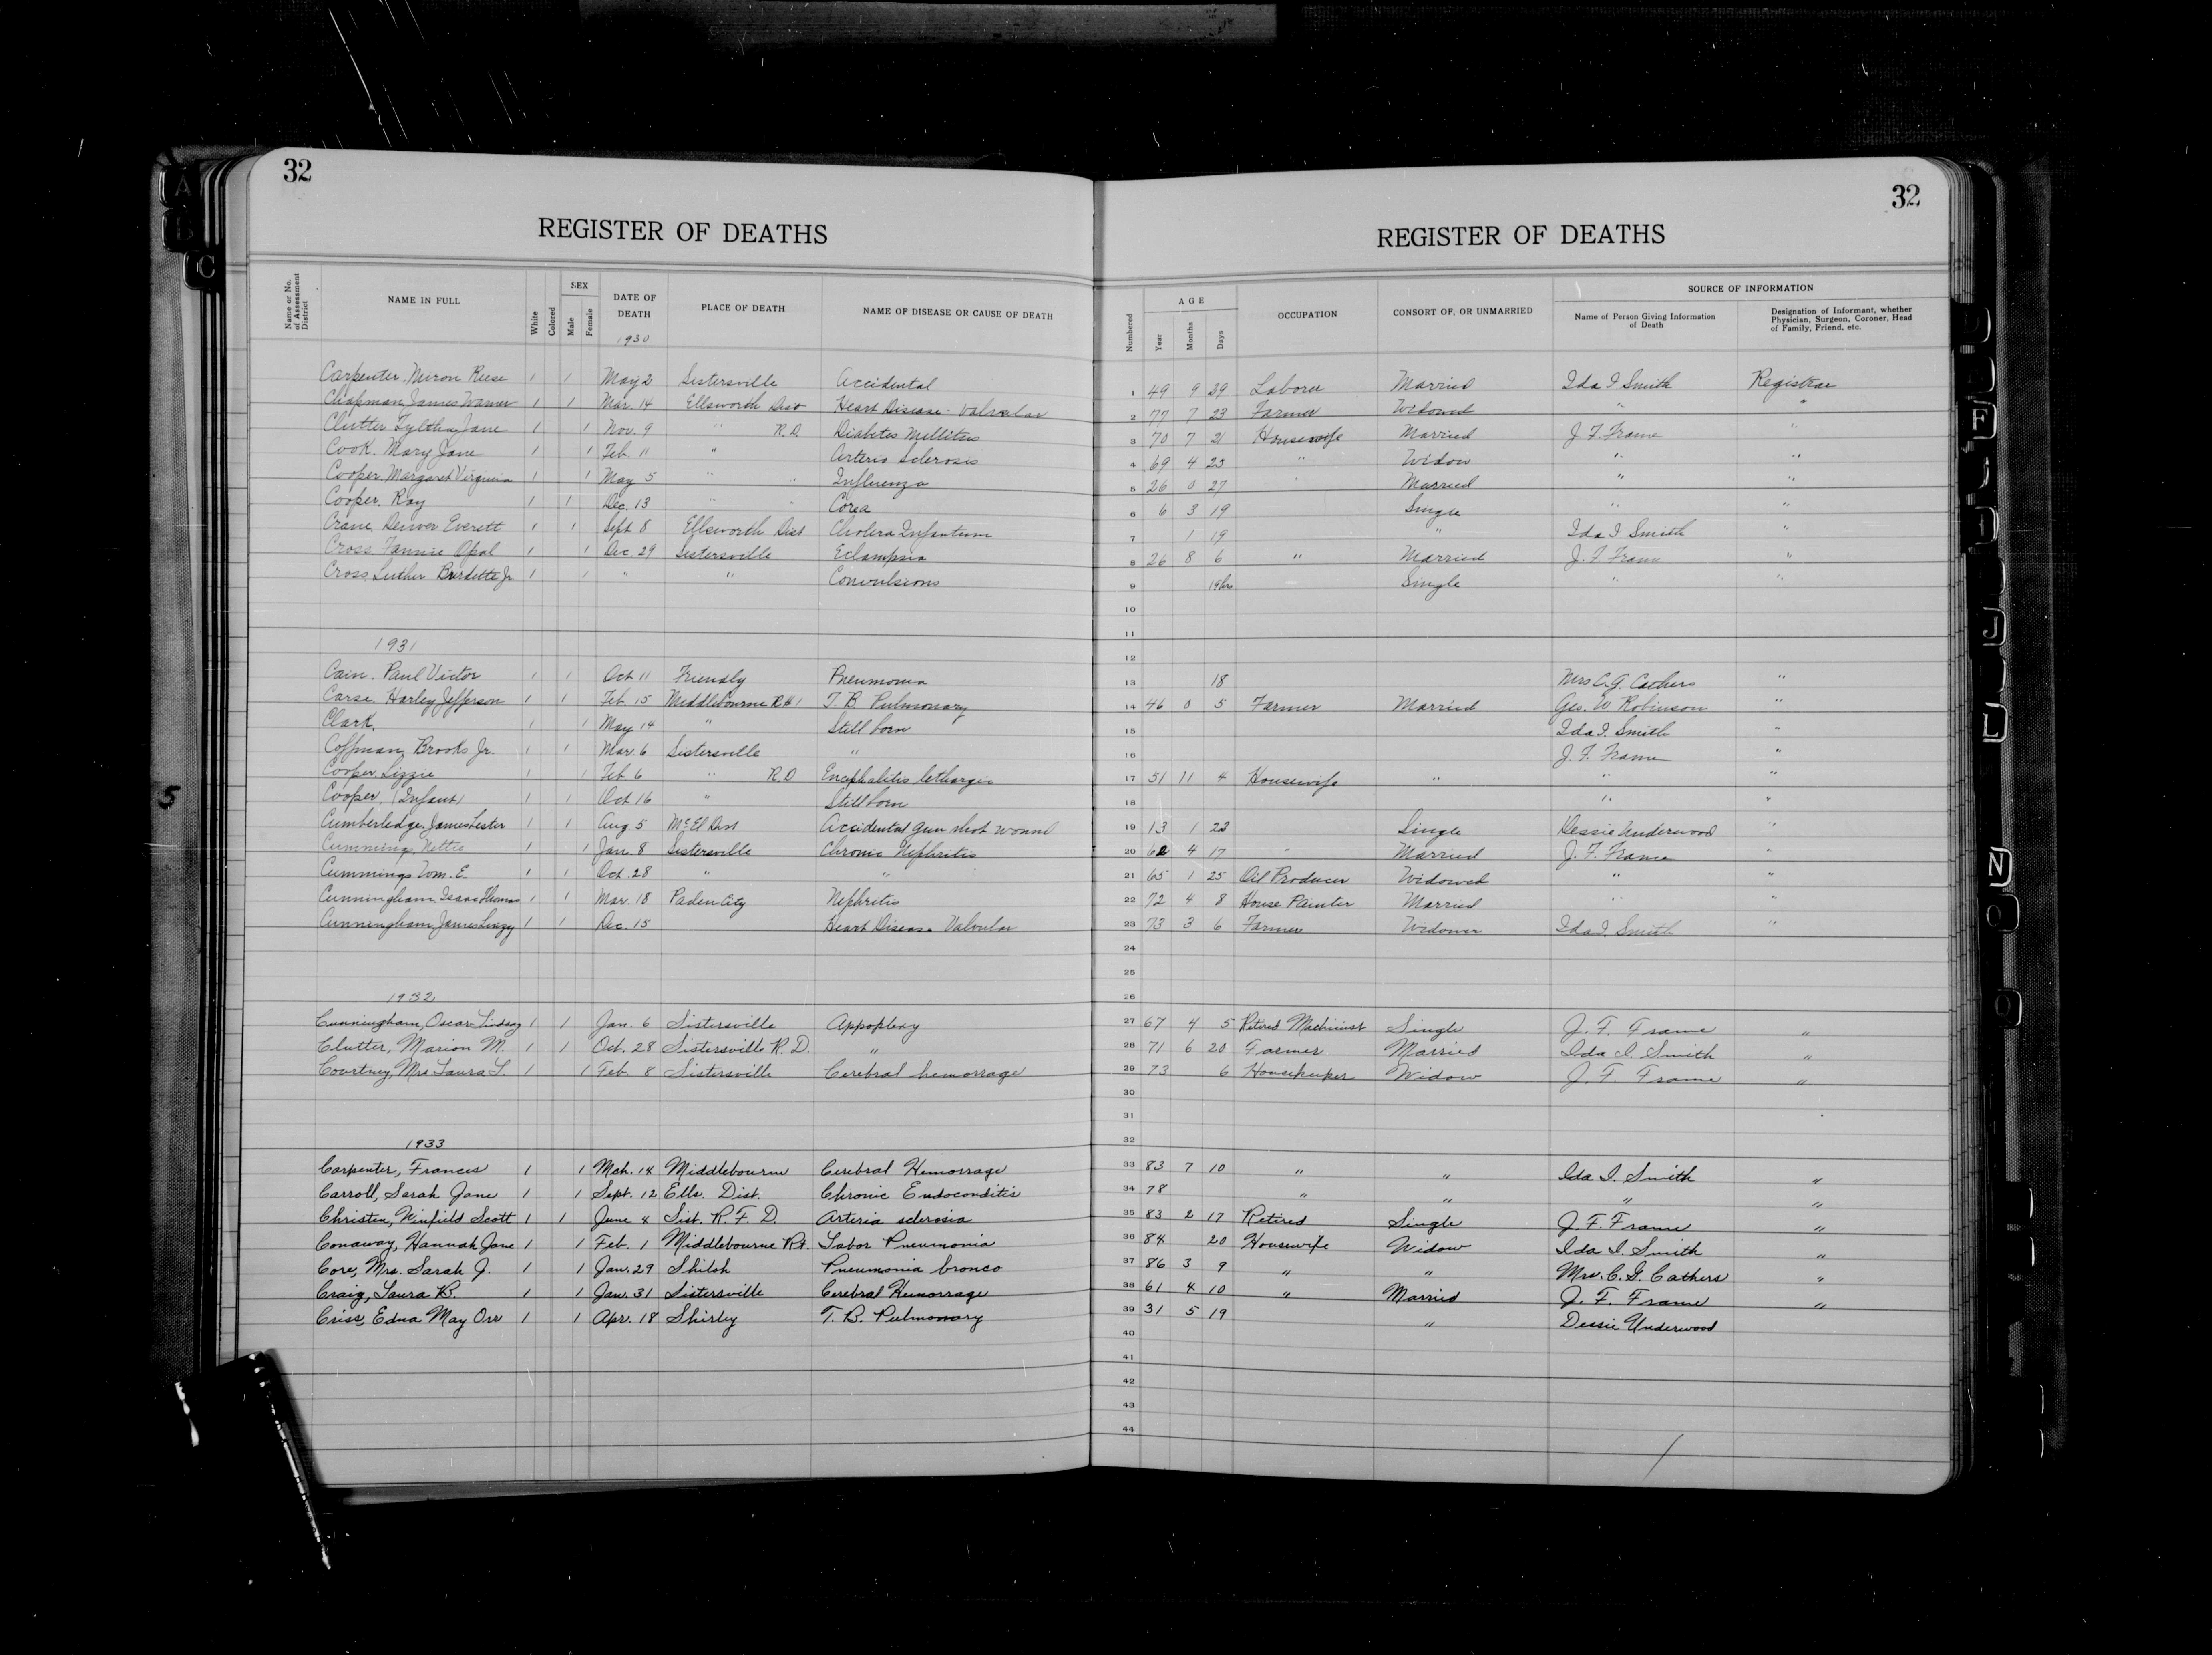 32
32
REGISTER OF DEATHS
REGISTER OF DEATHS
Name or No. of Assessment District
NAME IN FULL
White
Colored
SEX
Male
Female
DATE OF DEATH
1930
PLACE OF DEATH
NAME OF DISEASE OR CAUSE OF DEATH
Numbered
AGE
Year
Months
Days
OCCUPATION
CONSORT OF, OR UNMARRIED
SOURCE OF INFORMATION
Name of Person Giving Information of Death
Designation of Informant, whether Physician, Surgeon, Coroner, Head of Family, Friend, etc.
Carpenter, Miron Reese 1 1 May 2 Sistersville Accidental 1 49 9 29 Laborer Married Ida I Smith Registrar
Chapman, James Warner 1 1 Mar. 14 Ellsworth Dist Heart Disease - Valvular 2 77 7 23 Farmer Widowed " "
Clutter, Jane 1 1 Nov. 9 " R.D. Diabetes Mellitus 3 70 7 21 Housewife Married J. F. Frame "
Cook, Mary Jane 1 1 Feb. 11 " Arterio Sclerosis 4 69 4 23 " Widow " "
Cooper, Margaret Virginia 1 1 May 5 " " Influenza 5 26 0 27 " Married " "
Cooper, Ray 1 1 Dec. 13 " " Corea 6 6 3 19 Single " "
Crane, Denver Everett 1 1 Sept 8 Ellsworth Dist Cholera Infantum 7 1 19 " Ida I Smith "
Cross, Fannie Opal 1 1 Dec. 29 Sistersville Eclampsia 8 26 8 6 " Married J. F. Frame "
Cross, Luther Burdette Jr 1 1 " " Convulsions 9 19hrs Single " "
10
11
1931
12
Cain, Paul Victor 1 1 Oct 11 Friendly Pneumonia 13 18 Mrs C. G. Cathers "
Carse, Harley Jefferson 1 1 Feb. 15 Middlebourne R#1 T. B. Pulmonary 14 46 0 5 Farmer Married Geo. W Robinson "
Clark, 1 1 May 14 " Still born 15 Ida I. Smith "
Coffman, Brooks Jr. 1 1 Mar. 6 Sistersville " 16 J. F. Frame "
Cooper, Lizzie 1 1 Feb. 6 " R.D Encephalitis lethargic 17 51 11 4 Housewife " " "
Cooper, (Infant) 1 1 Oct 16 " Stillborn 18 " "
Cumberledge, James Lester 1 1 Aug 5 McEl Dist Accidental gun shot wound 19 13 1 23 Single Dessie Underwood "
Cummings, Nettie 1 1 Jan. 8 Sistersville Chronic Nephritis 20 4 17 " Married J. F. Frame "
Cummings Wm. E. 1 1 Oct. 28 " " 21 65 1 25 Oil Producer Widowed " "
Cunningham, Isaac Thomas 1 1 Mar. 18 Paden City Nephritis 22 72 4 8 House Painter Married " "
Cunningham, James 1 1 Dec. 15 Heart Disease Valvular 23 73 3 6 Farmer Widower Ida I. Smith "
24
25
1932
26
Cunningham, Oscar Lindsay 1 1 Jan. 6 Sistersville Appoplexy 27 67 4 5 Retired Machinist Single J. F. Frame "
Clutter, Marion M. 1 1 Oct. 28 Sistersville R. D. " 28 71 6 20 Farmer Married Ida I. Smith "
Courtney, Mrs Laura L. 1 1 Feb. 8 Sistersville Cerebral hemorrage 29 73 6 Housekeeper Widow J. F. Frame "
30
31
1933
32
Carpenter, Frances 1 1 Mch. 14 Middlebourne Cerebral Hemorrage 33 83 7 10 " " Ida I. Smith "
Carroll, Sarah Jane 1 1 Sept. 12 Ells. Dist. Chronic Endoconditis 34 78 " " " "
Christen, Winfield Scott 1 1 June 4 Sist. R. F. D. Arteria sclerosia 35 83 2 17 Retired Single J. F. Frame "
Conaway, Hannah Jane 1 1 Feb. 1 Middlebourne Rt. Labor Pneumonia 36 84 20 Housewife Widow Ida I. Smith "
Core, Mrs. Sarah J. 1 1 Jan. 29 Shiloh Pneumonia bronco 37 86 3 9 " " Mrs. C. G. Cathers "
Craig, Laura B. 1 1 Jan. 31 Sistersville Cerebral Hemorrage 38 61 4 10 " Married J. F. Frame "
Criss, Edna May Orr 1 1 Apr. 18 Shirley T. B. Pulmonary 39 31 5 19 " Dessie Underwood
40
41
42
43
44
A
B
C
5
F
J
L
N
O